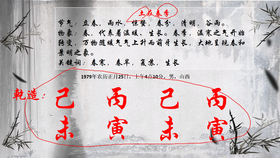 土在春季
节气：立春、雨水、惊蛰、春分、清明、谷雨。
物象：春、代表着温暖、生长。春季，温寒之气开始
转变，万物随暖气气上升而萌芽生长，大地呈现春和
景明之象。
关键词：春寒、春旱、复苏、生长
1979年农历正月25日，上午4点10分，男，山西
乾造：己 丙 己 丙
未 寅 未 寅